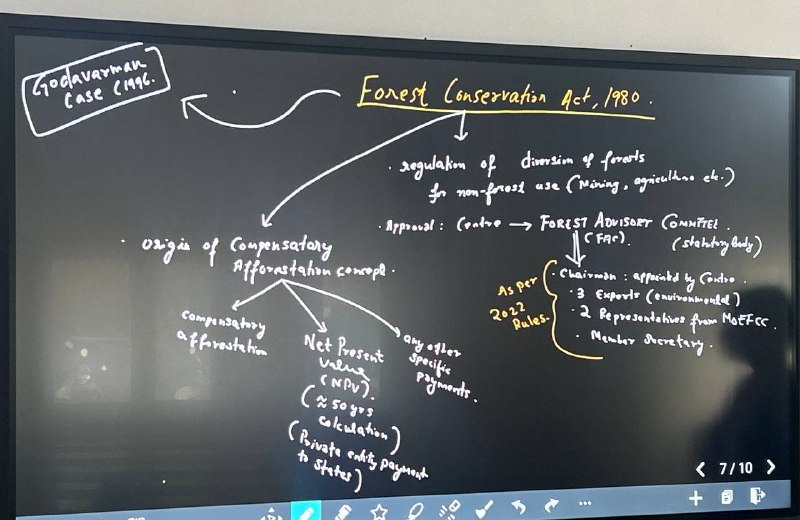 Godavarman
Case (1996.
Forest Conservation Act, 1980.
· regulation of diversion of forests
for non-forest use (Mining, agriculture etc.)
· Approval : Centre → FOREST ADVISORY COMMITTEE.
(FAC). (Statutory Body)
· Origin of Compensatory
Afforestation concept.
As per
2022
Rules.
· Chairman : appointed by Centre.
· 3 Experts (environmental)
· 2 Representatives from MoEFCC.
· Member Secretary.
Compensatory
afforestation
Net Present
Value
(NPV).
(≈ 50 yrs
calculation)
(Private entity payment
to States)
any other
specific
payments.
< 7/10 >